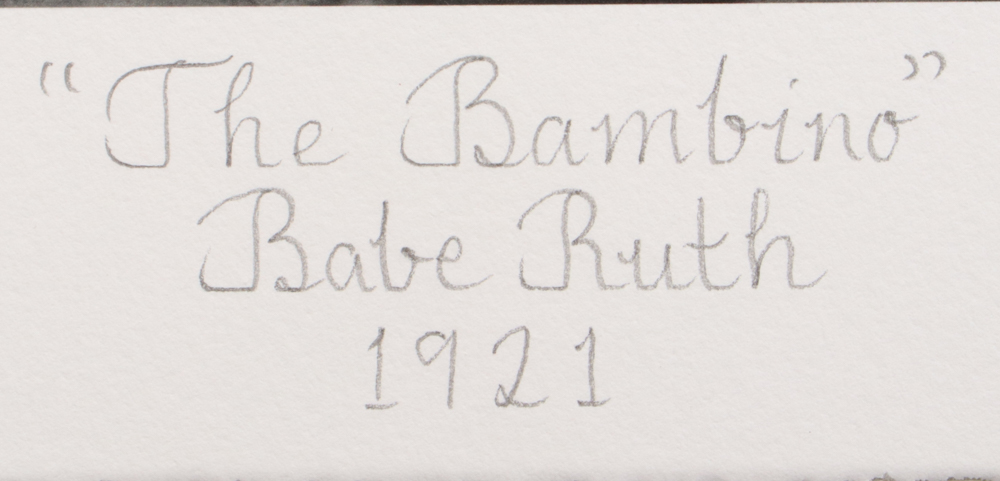 “The Bambino”
Babe Ruth
1921